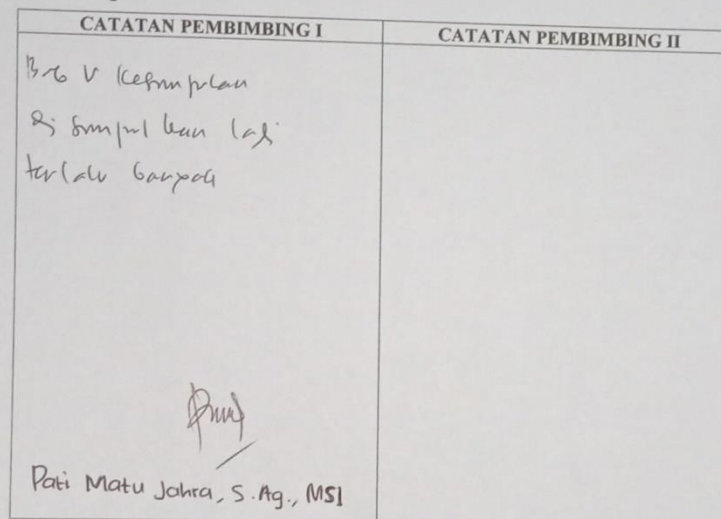 CATATAN PEMBIMBING I
CATATAN PEMBIMBING II
Bab V Kesimpulan
di simpulkan lagi
terlalu banyak
Pati Matu Jahra, S.Ag., MSI